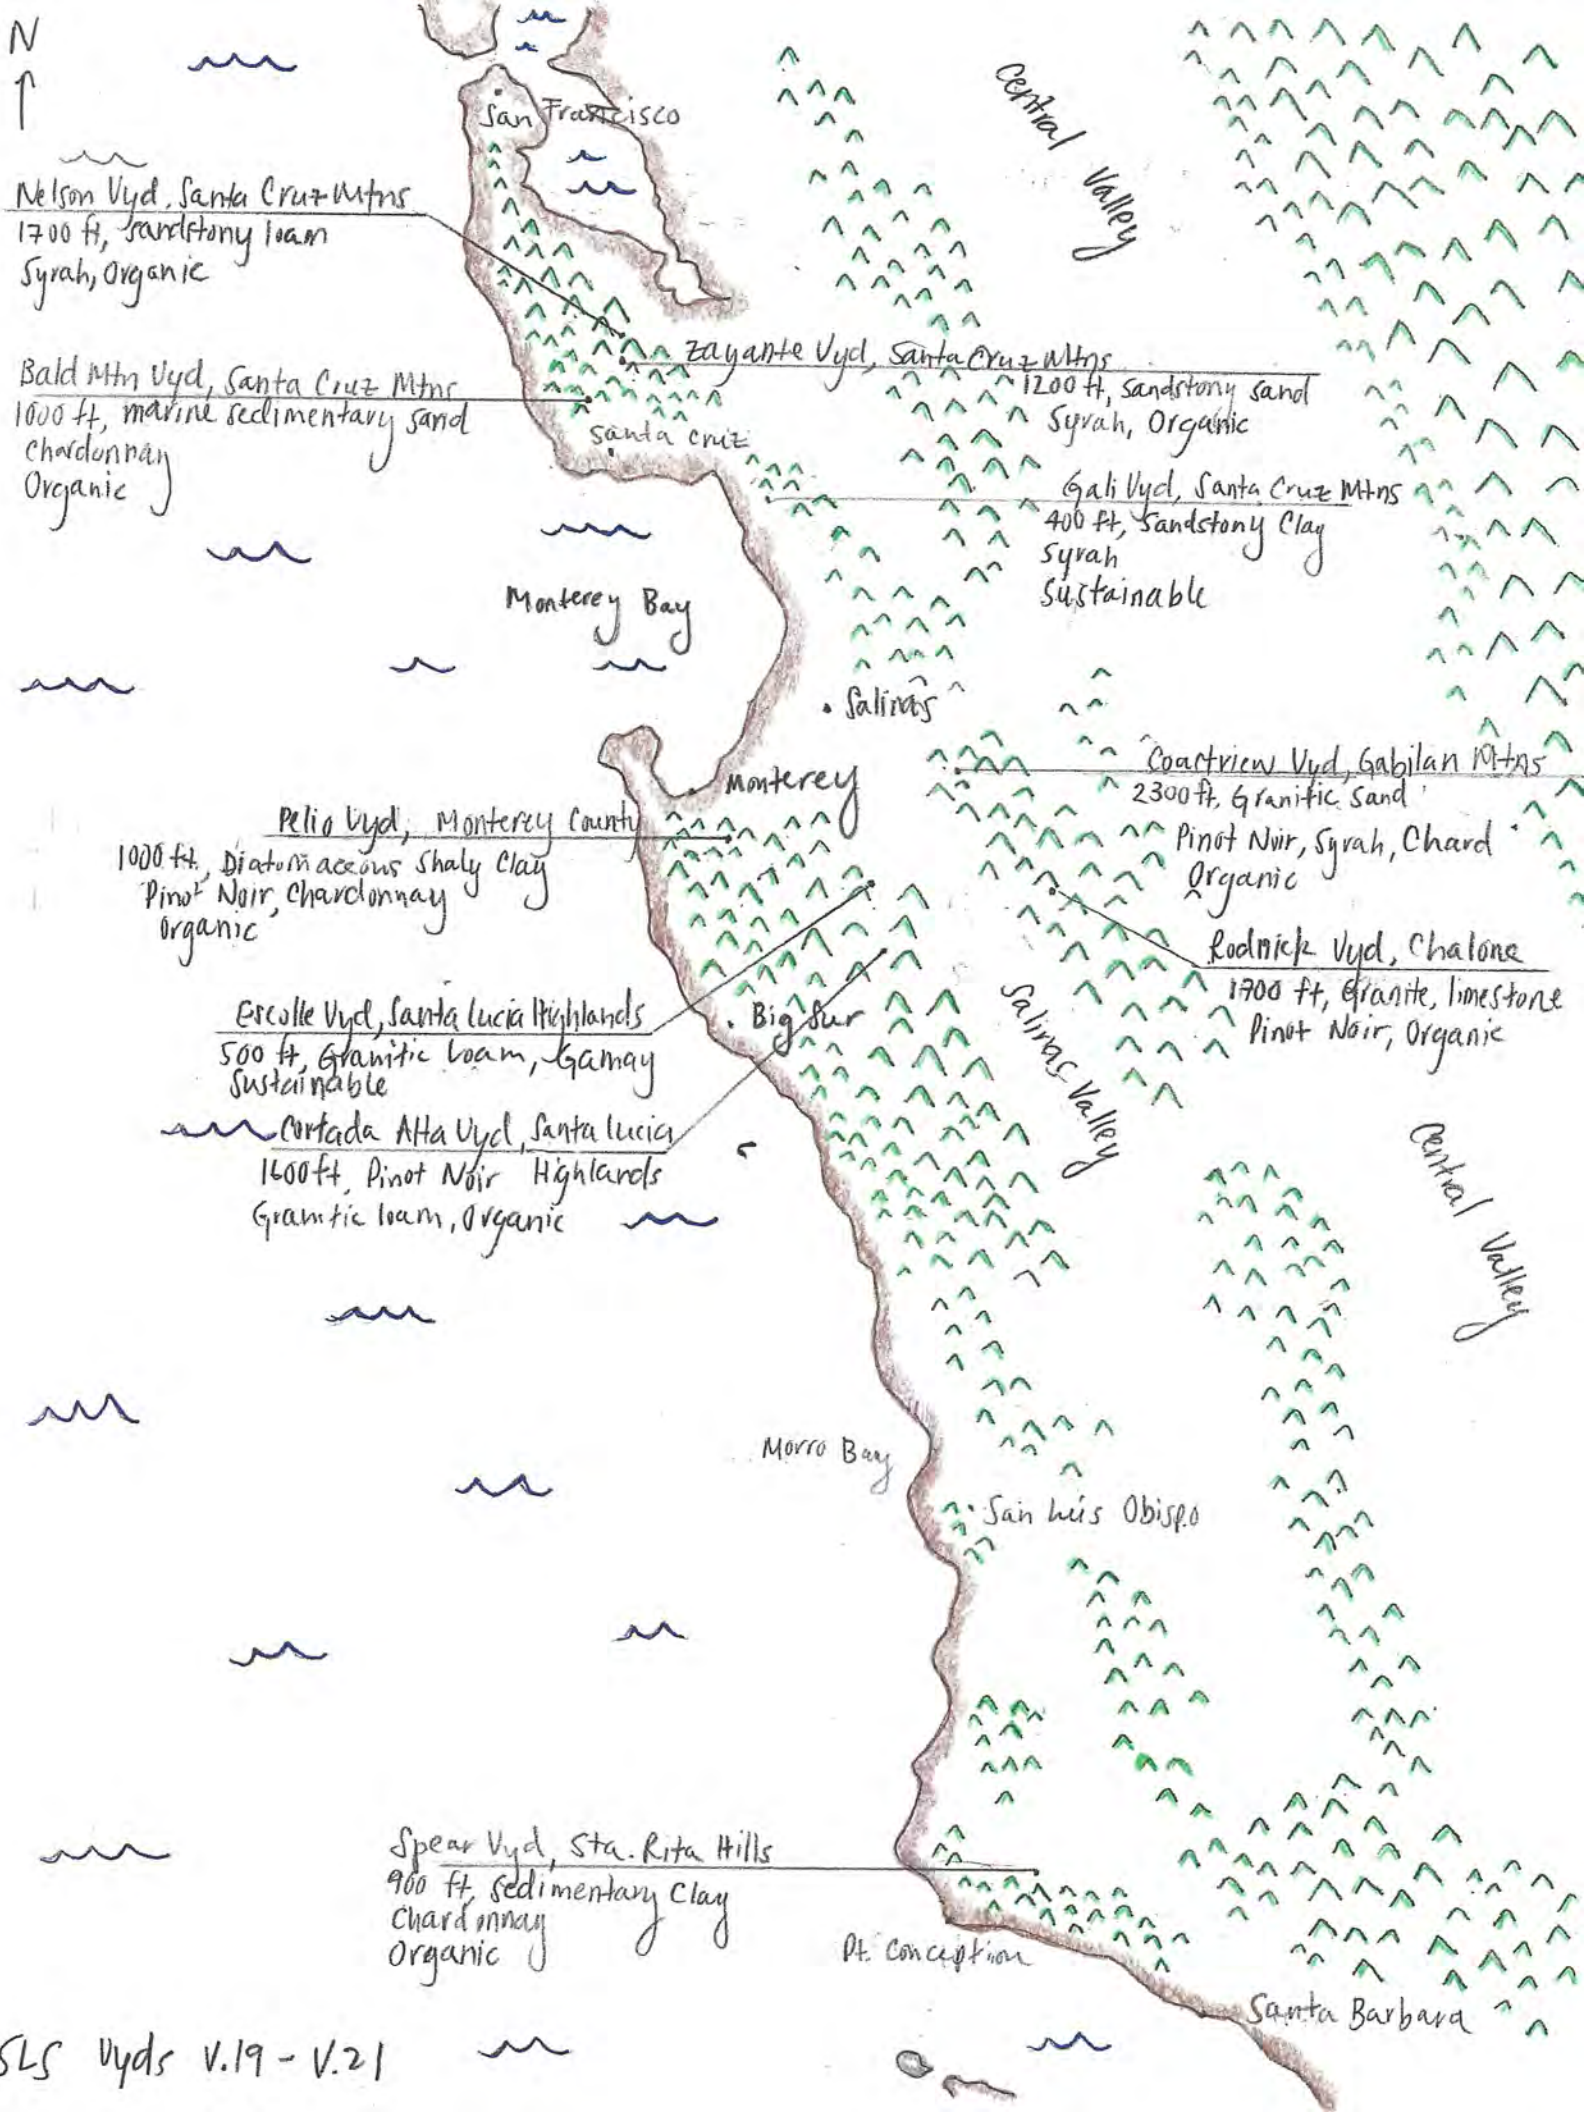 N
San Francisco
Central Valley
Nelson Vyd, Santa Cruz Mtns
1700 ft, sandstony loam
Syrah, Organic
Zayante Vyd, Santa Cruz Mtns
1200 ft, sandstony sand
Syrah, Organic
Bald Mtn Vyd, Santa Cruz Mtns
1000 ft, marine sedimentary sand
Chardonnay
Organic
Santa Cruz
Gali Vyd, Santa Cruz Mtns
400 ft, Sandstony Clay
Syrah
Sustainable
Monterey Bay
Salinas
Monterey
Coastview Vyd, Gabilan Mtns
2300 ft, Granitic Sand
Pinot Noir, Syrah, Chard
Organic
Pelio Vyd, Monterey County
1000 ft, Diatomaceous Shaly Clay
Pinot Noir, Chardonnay
Organic
Rodnick Vyd, Chalone
1700 ft, Granite, limestone
Pinot Noir, Organic
Escolle Vyd, Santa Lucia Highlands
500 ft, Granitic Loam, Gamay
Sustainable
Big Sur
Salinas Valley
Cortada Alta Vyd, Santa Lucia
1600 ft, Pinot Noir Highlands
Granitic loam, Organic
Central Valley
Morro Bay
San Luis Obispo
Spear Vyd, Sta. Rita Hills
900 ft, Sedimentary Clay
Chardonnay
Organic
Pt. Conception
Santa Barbara
SLS Vyds V.19 - V.21